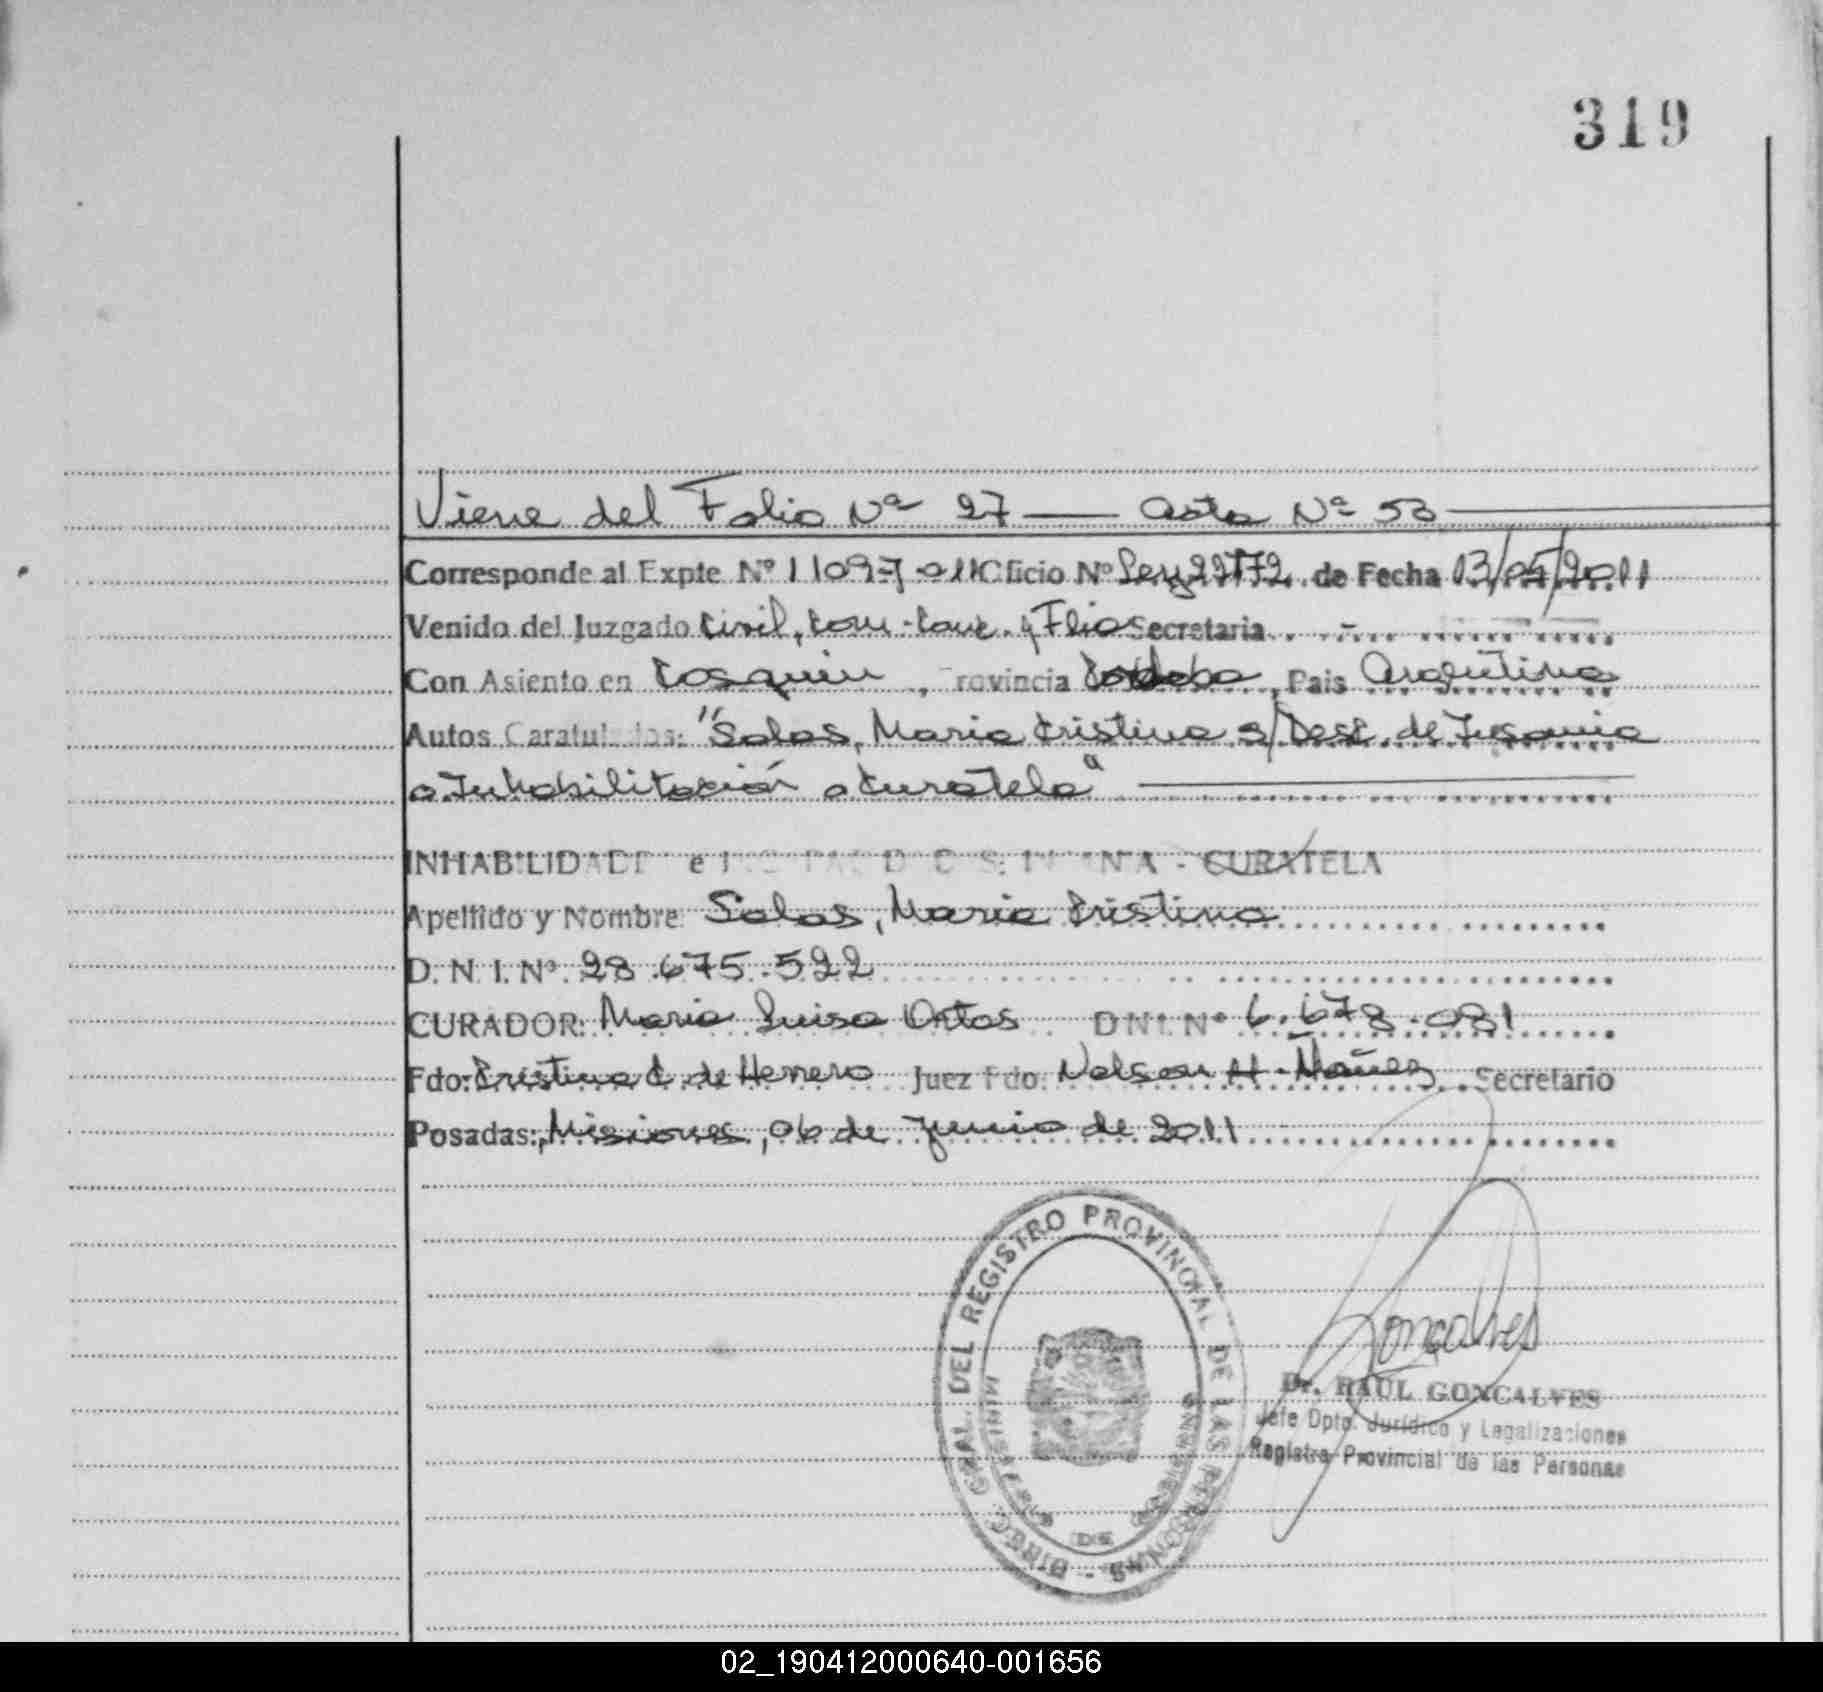 319
Viene del Folio Nº 27 — Acta Nº 53
Corresponde al Expte Nº 11097-011 Oficio Nº Ley 22172 de Fecha 13/05/2011
Venido del Juzgado Civil, Com. Conc. y Flia Secretaria
Con Asiento en Cosquin, Provincia Cordoba, Pais Argentina
Autos Caratulados: "Salas, Maria Cristina s/Desc. de Insania
o Inhabilitación o Curatela"
INHABILIDAD e INCAPACIDAD CURATELA
Apellido y Nombre: Salas, Maria Cristina
D. N. I. Nº 28.675.522
CURADOR: Maria Luisa Ortas D N I. Nº 6.678.081
Fdo: Cristina C. de Herrero Juez Fdo: Nelson H. Ñañez Secretario
Posadas:, Misiones, 06 de Junio de 2011
DIREC. GRAL. DEL REGISTRO PROVINCIAL DE LAS PERSONAS -
MINISTERIO DE GOBIERNO
Goncalves
Dr. RAUL GONCALVES
Jefe Dpto. Jurídico y Legalizaciones
Registro Provincial de las Personas
02_190412000640-001656